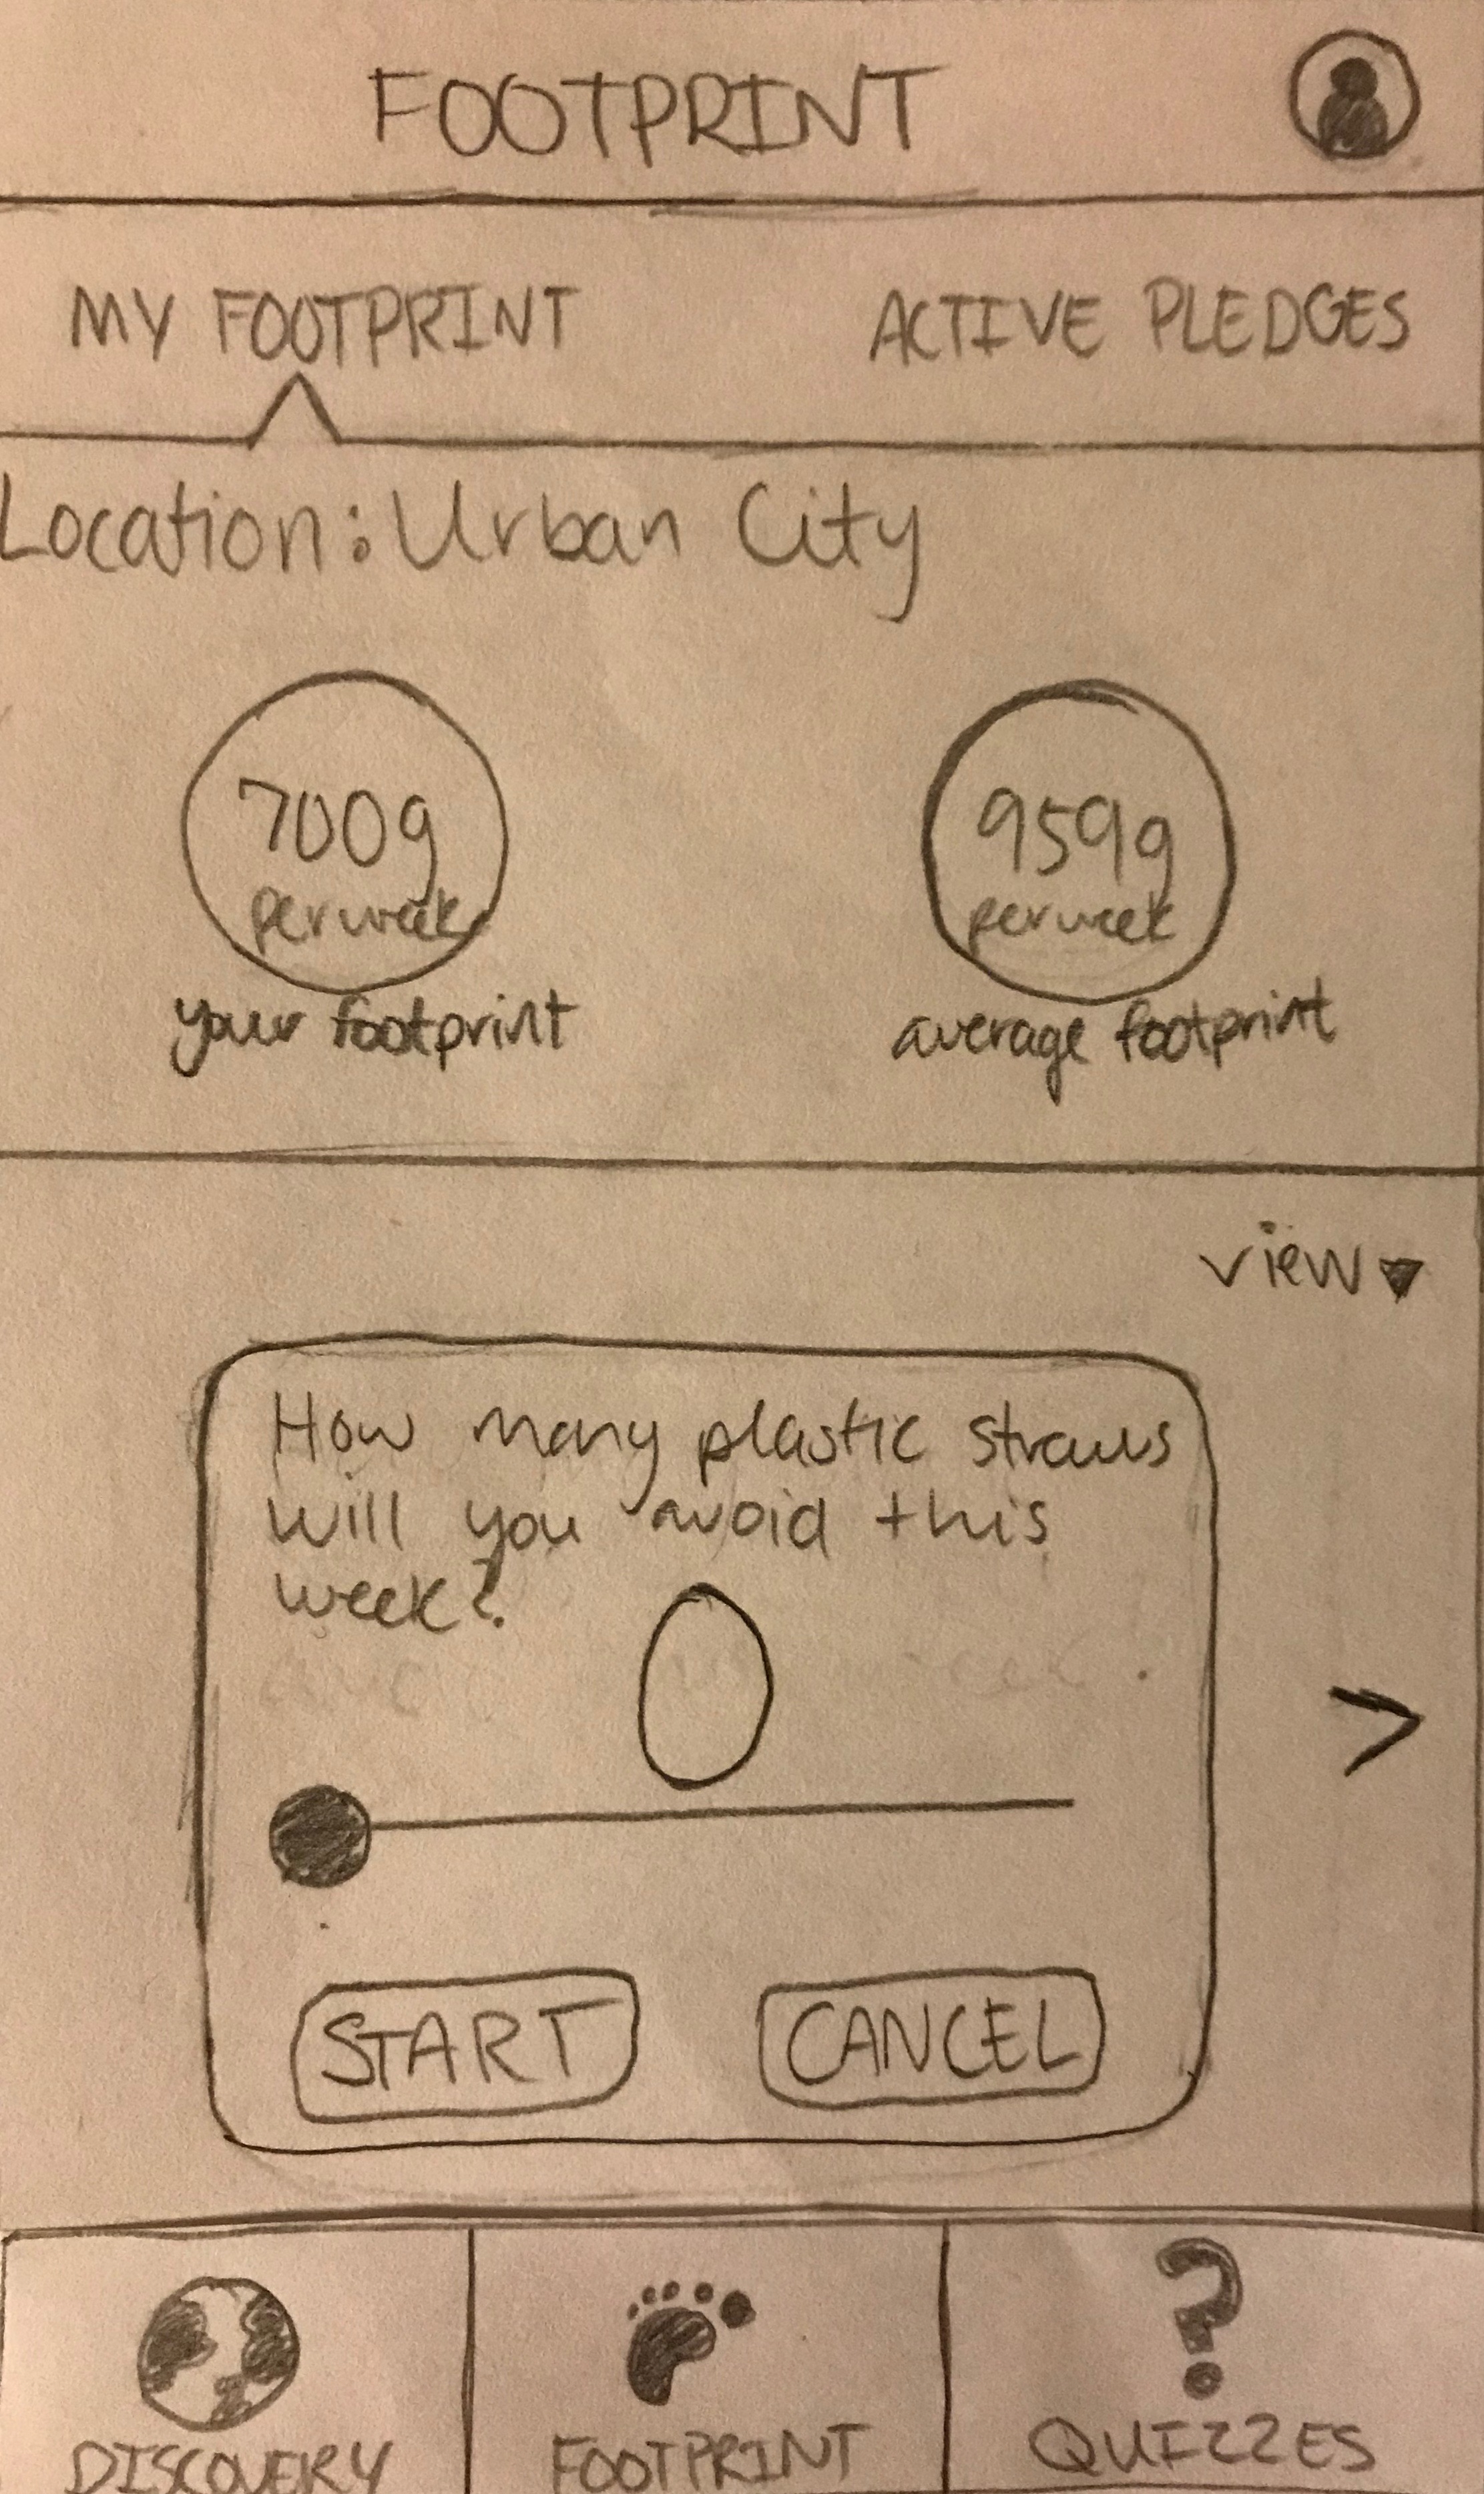 FOOTPRINT
MY FOOTPRINT
ACTIVE PLEDGES
Location: Urban City
700g
per week
your footprint
959g
per week
average footprint
view
How many plastic straws
will you avoid this
week?
0
>
START
CANCEL
DISCOVERY
FOOTPRINT
?
QUIZZES